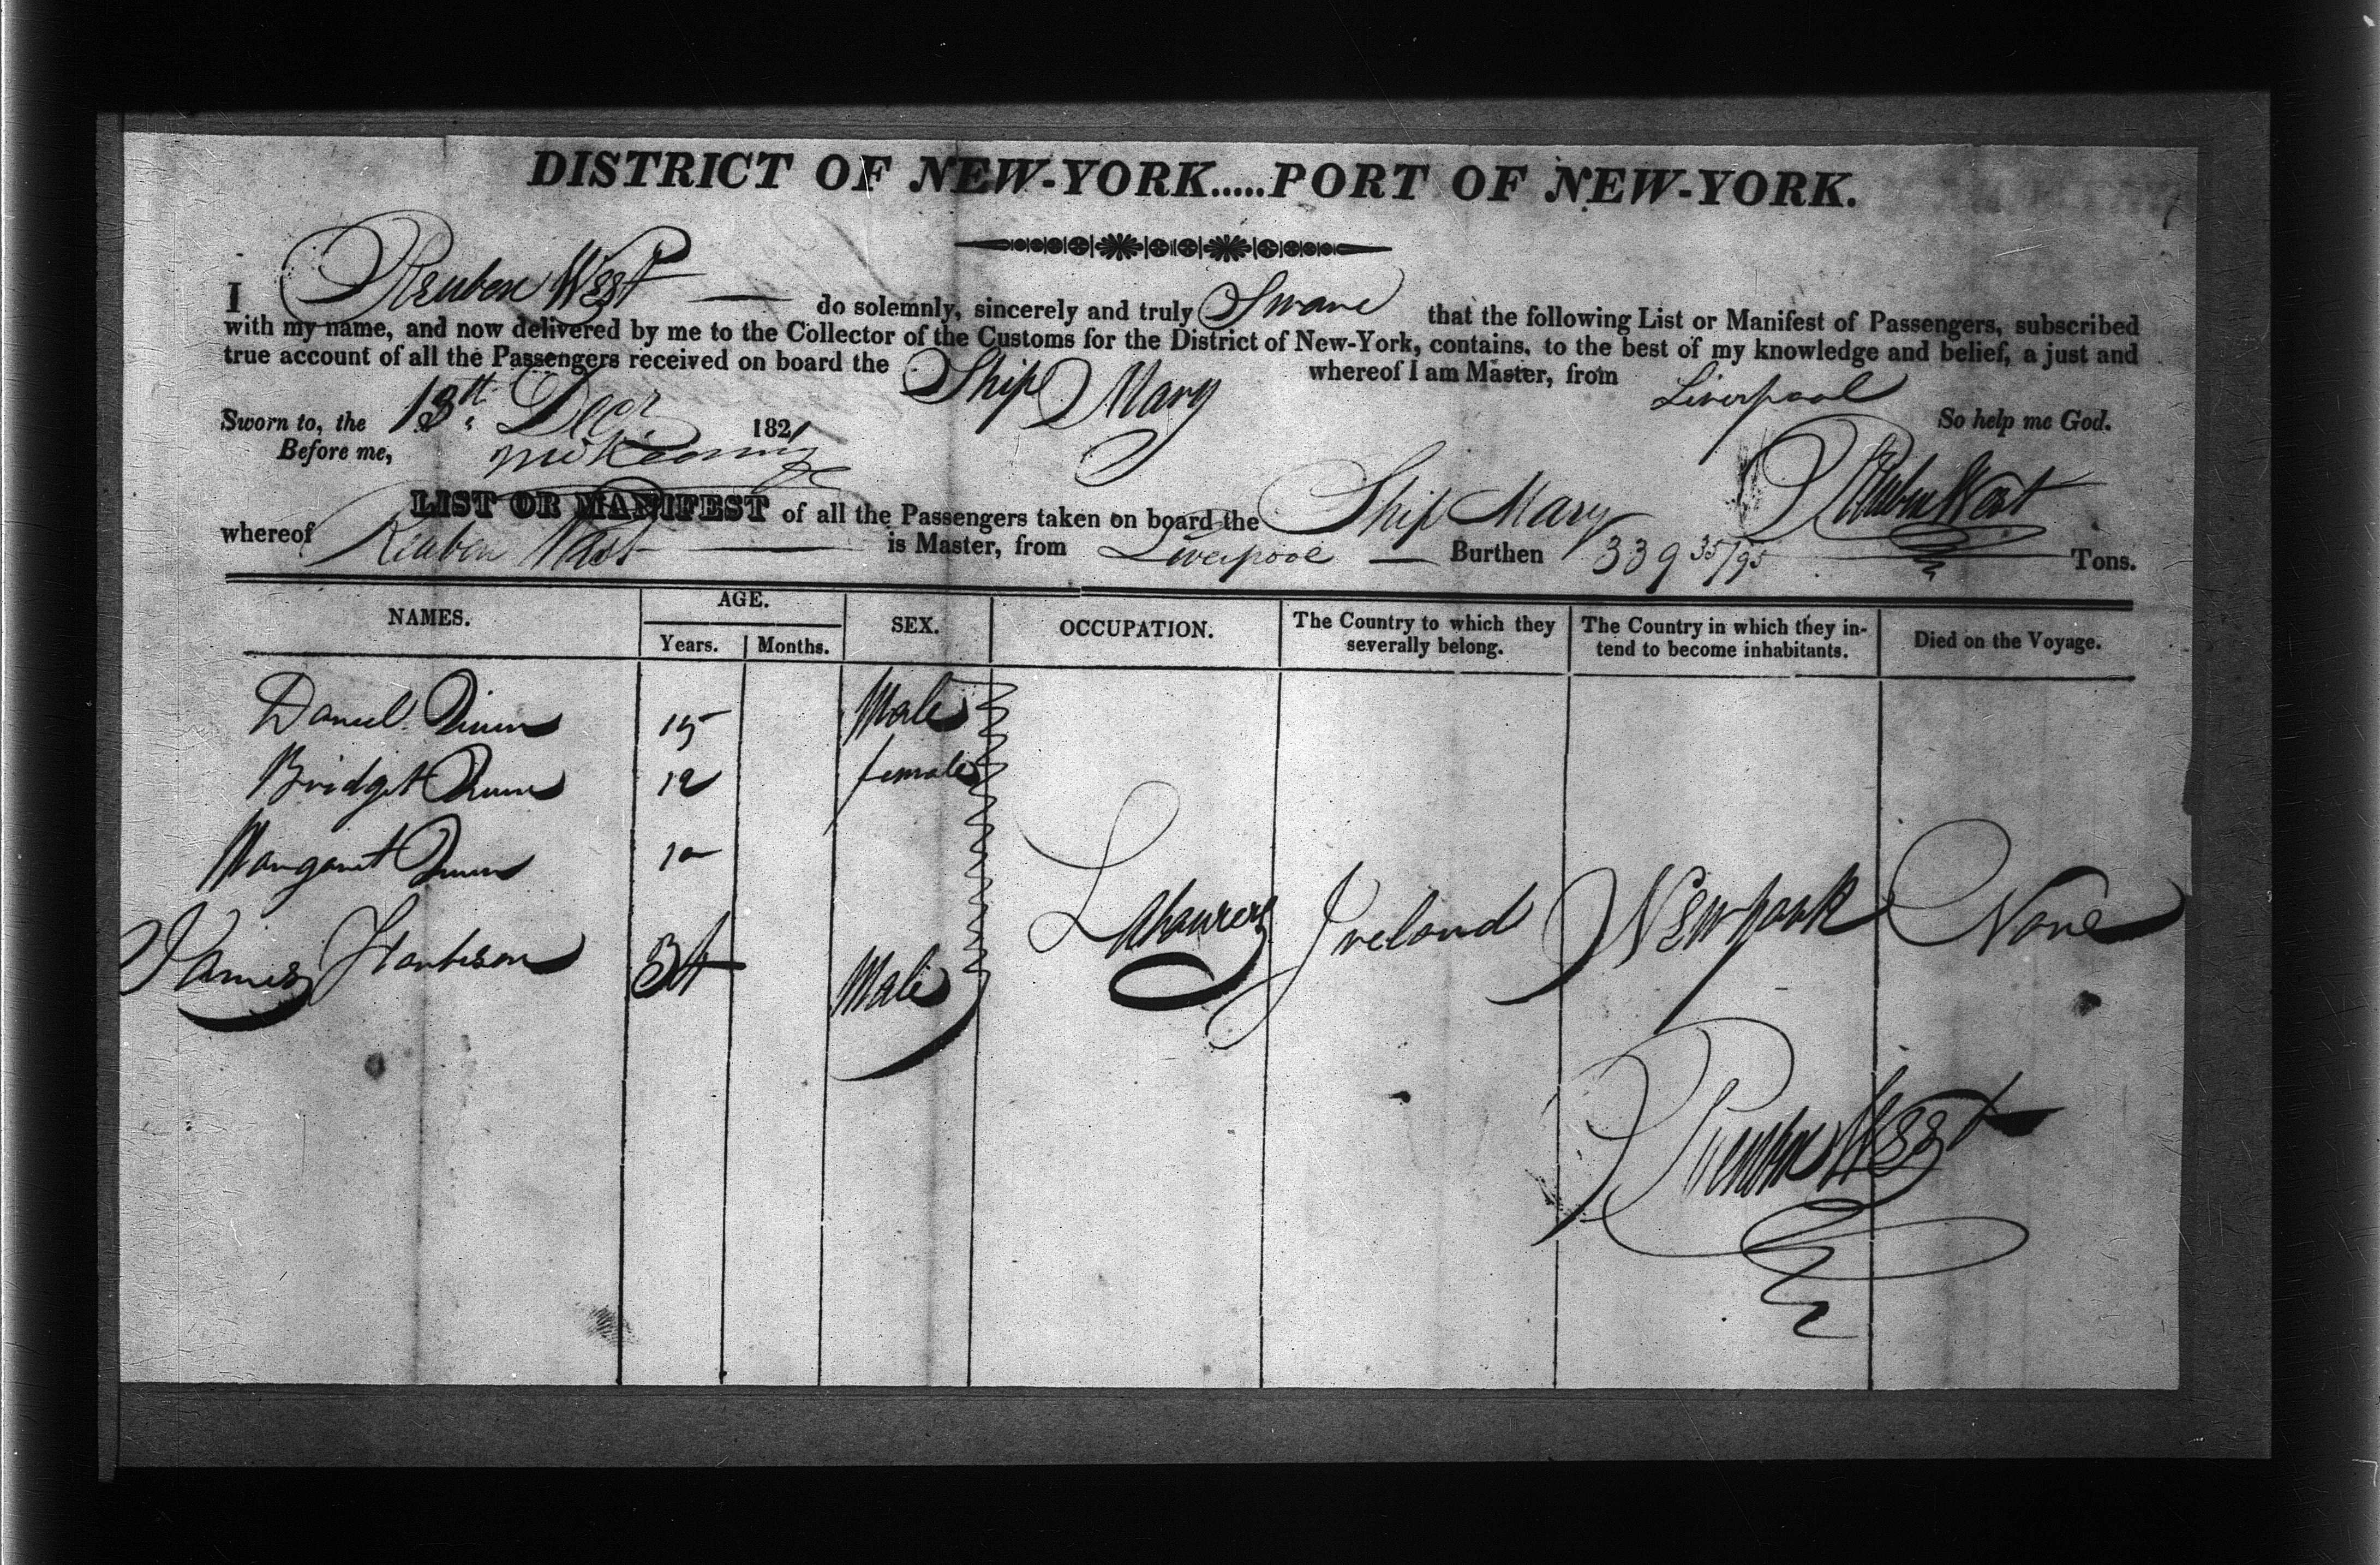 DISTRICT OF NEW-YORK.....PORT OF NEW-YORK.
I Reuben West — do solemnly, sincerely and truly Sware that the following List or Manifest of Passengers, subscribed
with my name, and now delivered by me to the Collector of the Customs for the District of New-York, contains, to the best of my knowledge and belief, a just and
true account of all the Passengers received on board the Ship Mary whereof I am Master, from Liverpool
Sworn to, the 13th Decr 1821 So help me God.
Before me, Reuben West
LIST OR MANIFEST of all the Passengers taken on board the Ship Mary
whereof Reuben West — is Master, from Liverpool — Burthen 339 35/95 Tons.
NAMES. AGE. SEX. OCCUPATION. The Country to which they severally belong. The Country in which they intend to become inhabitants. Died on the Voyage.
Years. Months.
Daniel 15 Male
Bridget 12 female
Margaret 10
James Harbison 34 Male Labourers Ireland New york None
Reuben West